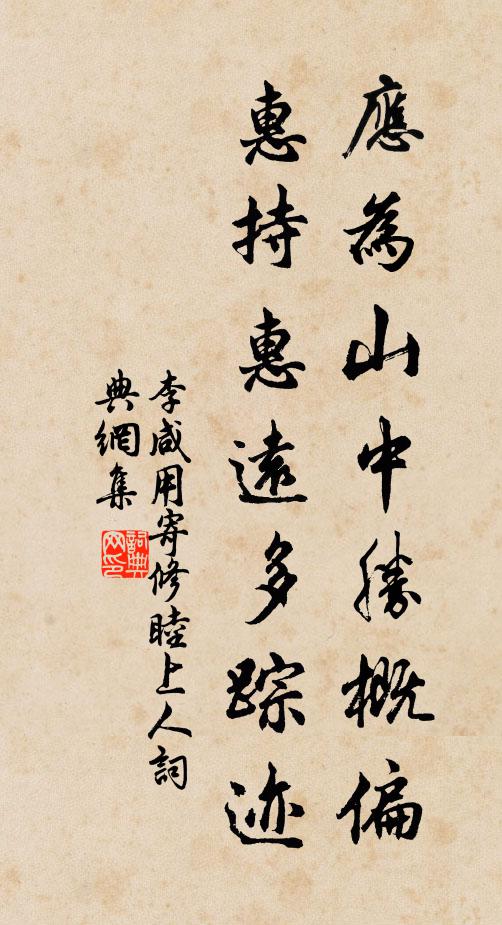 應為山中勝概偏
惠持惠遠多踪迹
李咸用寄修睦上人詞
典網集
詞典
网印